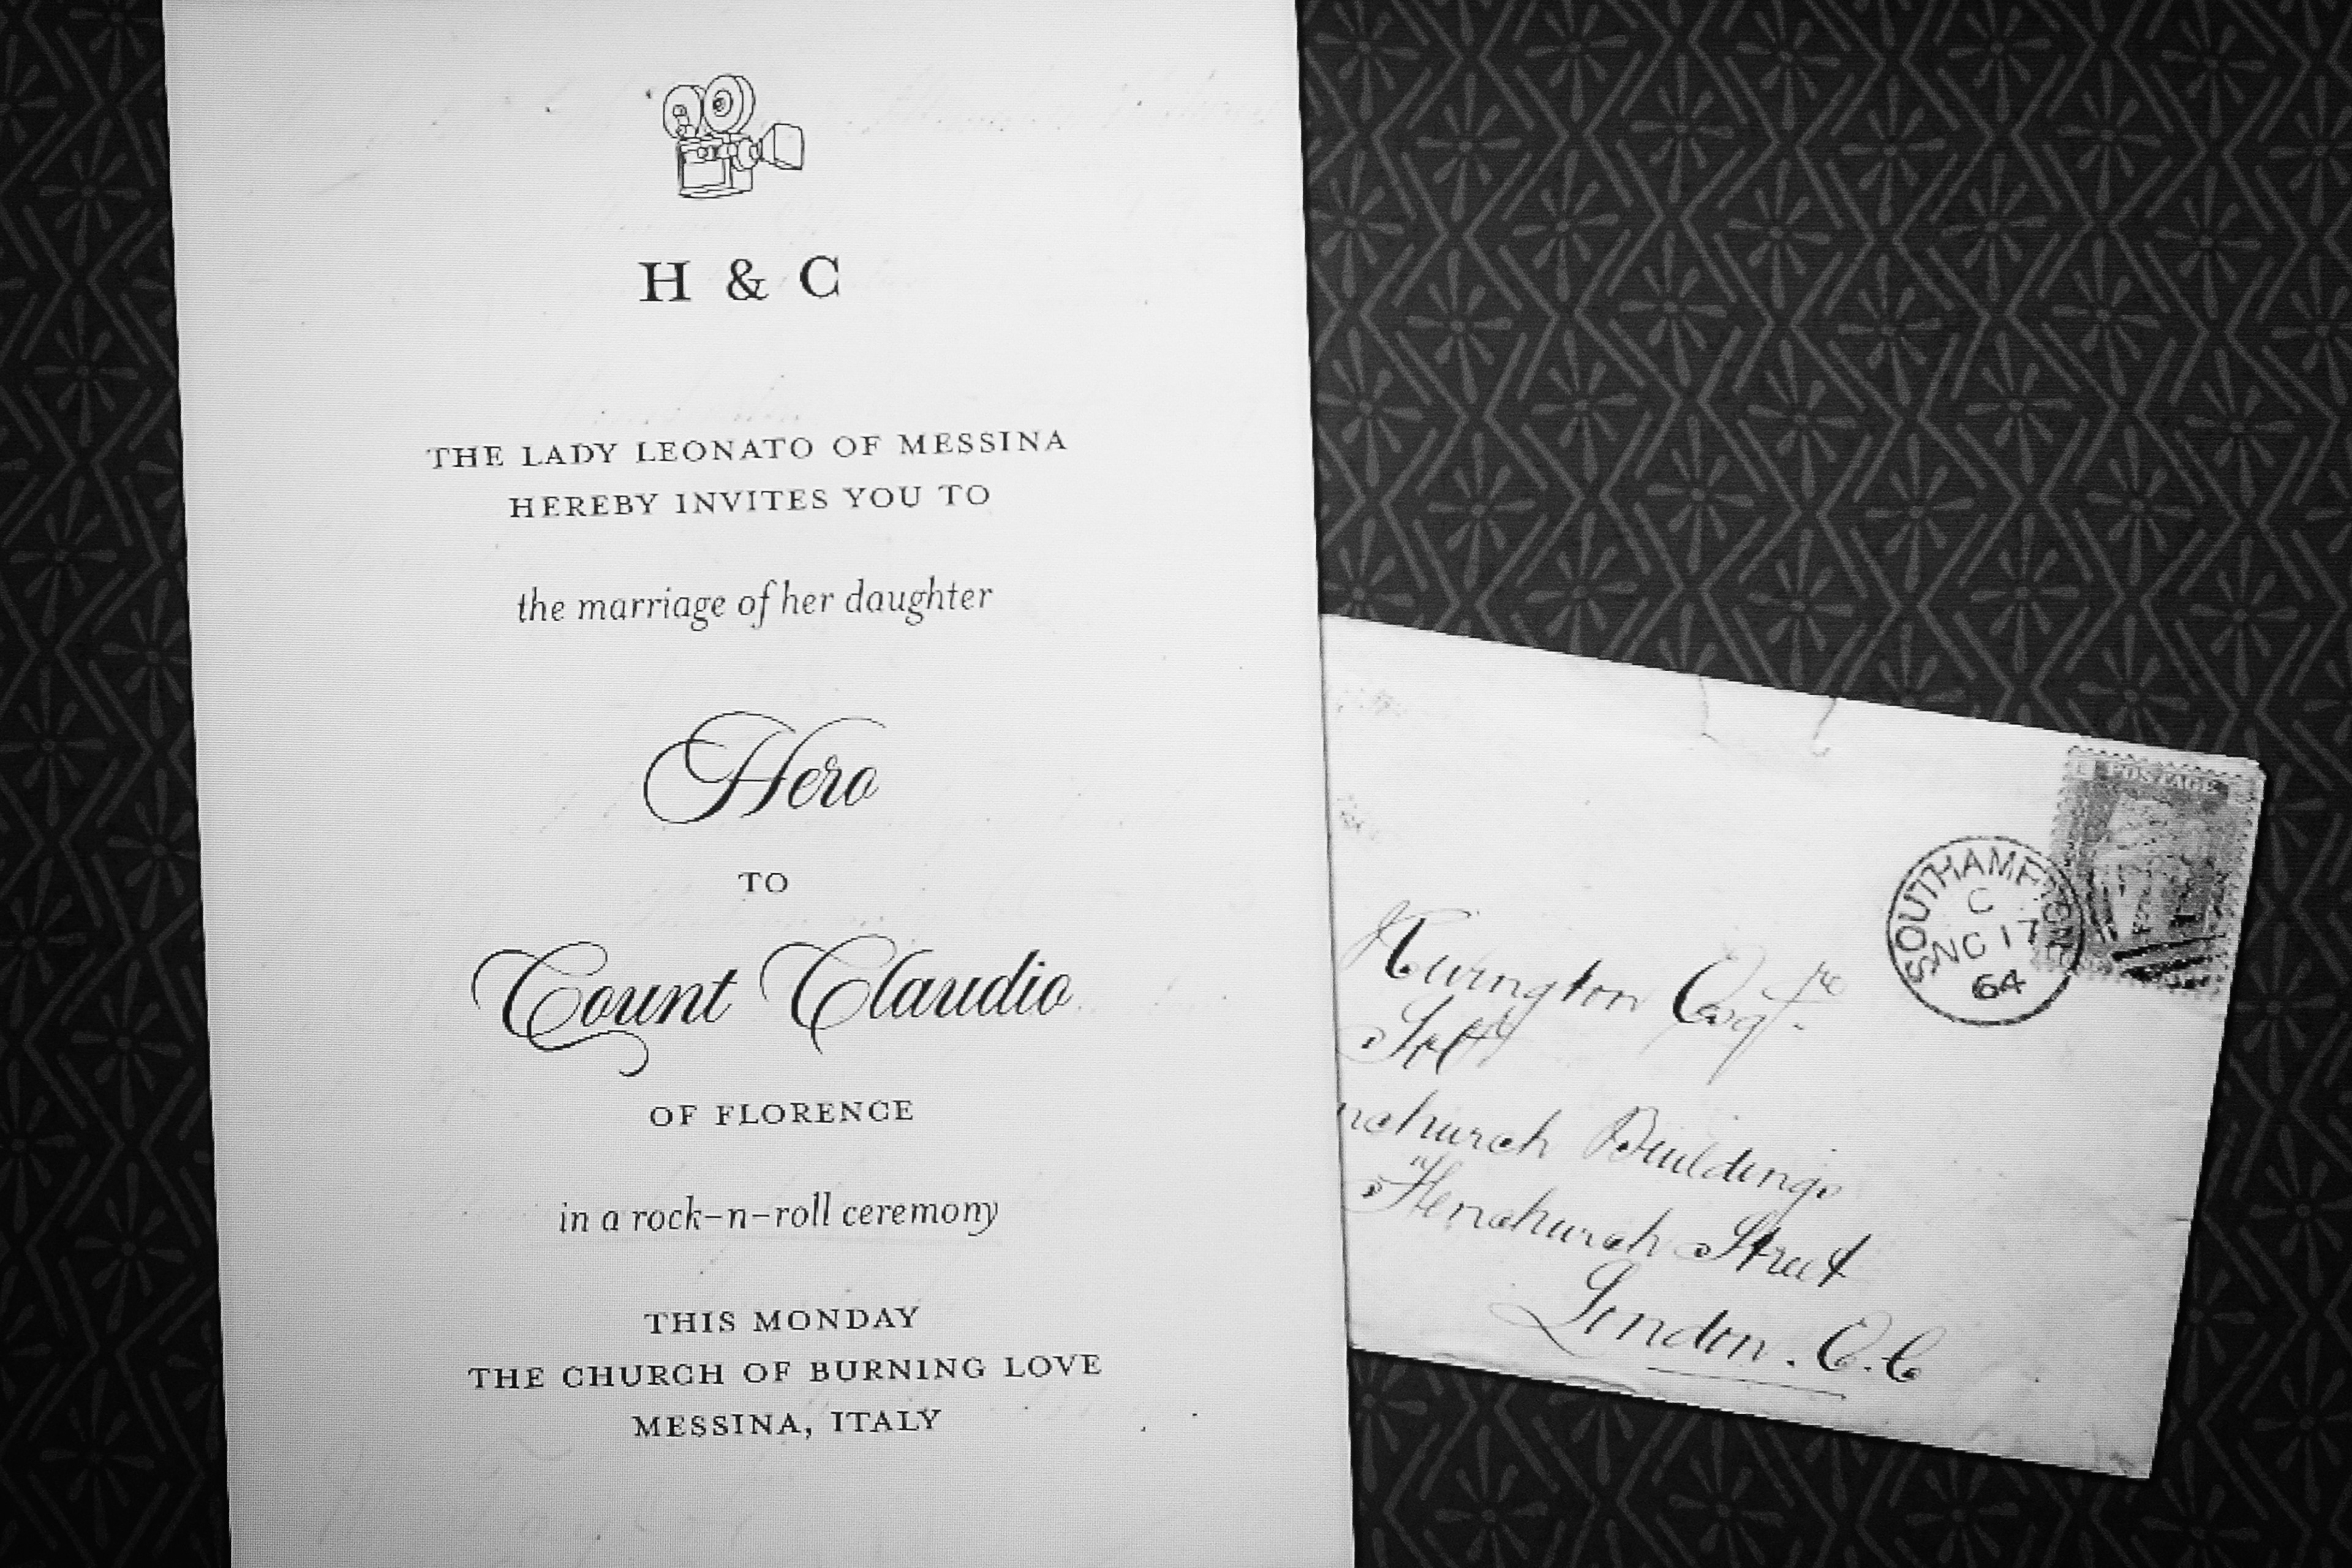 H & C
THE LADY LEONATO OF MESSINA
HEREBY INVITES YOU TO
the marriage of her daughter
Hero
TO
Count Claudio
OF FLORENCE
in a rock-n-roll ceremony
THIS MONDAY
THE CHURCH OF BURNING LOVE
MESSINA, ITALY
POSTAGE
SOUTHAMPTON
C
17
64
Buildings
Fenchurch Street
London. E.C